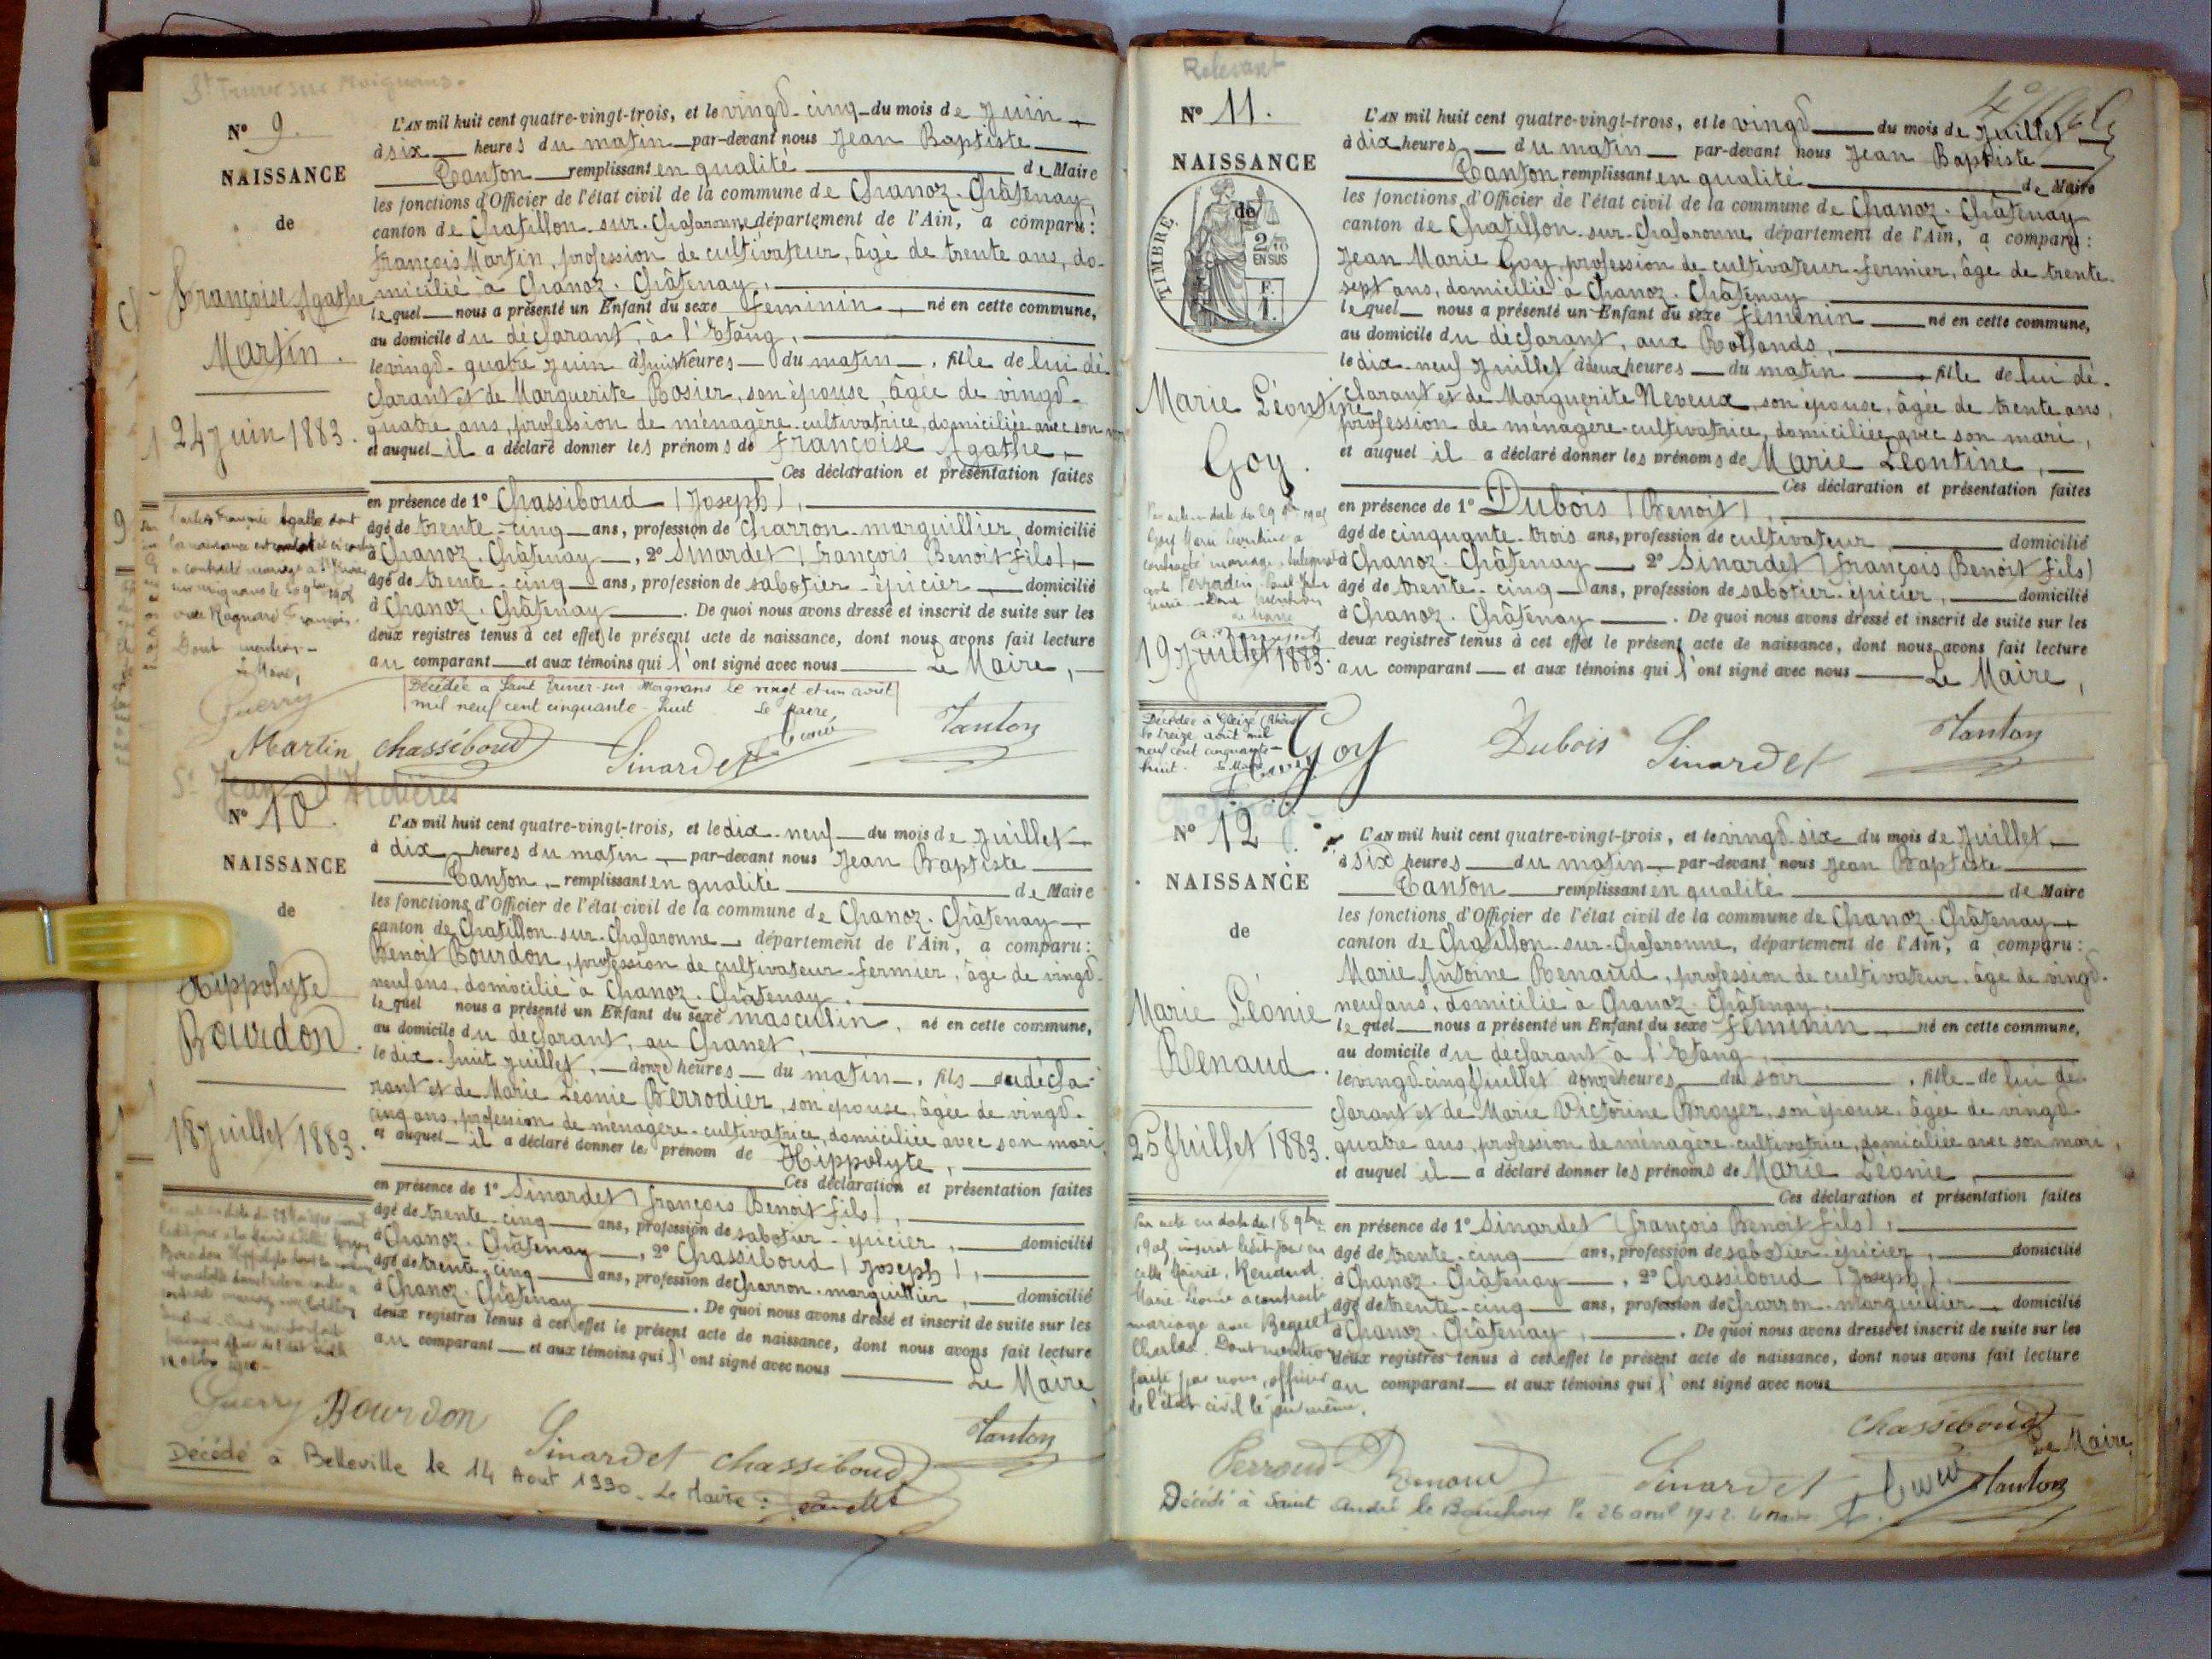 St Trivier sur Moignans.
N° 9.
NAISSANCE
de
Françoise Agathe
Martin.
24 Juin 1883.
L'AN mil huit cent quatre-vingt-trois, et le vingt-cinq du mois de Juin
à six heures du matin par-devant nous Jean Baptiste
Tanton remplissant en qualité de Maire
les fonctions d'Officier de l'état civil de la commune de Chanoz-Châtenay,
canton de Chatillon-sur-Chalaronne département de l'Ain, a comparu :
François Martin, profession de cultivateur, âgé de trente ans, do-
micilié à Chanoz-Châtenay,
lequel nous a présenté un Enfant du sexe féminin né en cette commune,
au domicile du déclarant, à l'Etang,
le vingt-quatre Juin à huit heures du matin, fille de lui dé-
clarant et de Marguerite Rosier, son épouse, âgée de vingt-
quatre ans, profession de ménagère-cultivatrice, domiciliée avec son
et auquel il a déclaré donner les prénoms de Françoise Agathe,
Ces déclaration et présentation faites
en présence de 1° Chassiboud (Joseph),
âgé de trente-cinq ans, profession de charron-marguillier, domicilié
à Chanoz-Châtenay, 2° Sinardet (François Benoit fils),
âgé de trente-cinq ans, profession de sabotier-épicier, domicilié
à Chanoz-Châtenay. De quoi nous avons dressé et inscrit de suite sur les
deux registres tenus à cet effet le présent acte de naissance, dont nous avons fait lecture
au comparant et aux témoins qui l'ont signé avec nous Le Maire,
Françoise Agathe dont
la naissance est constatée ci-contre
a contracté mariage à St Trivier
sur Moignans le
avec François.
Dont mention
Le Maire,
Guerry
Décédée à Saint Trivier-sur Moignans le vingt et un août
mil neuf cent cinquante-huit Le Maire
Martin Chassiboud Sinardet Tanton
St Jean d'Ardières
N° 10.
NAISSANCE
de
Hippolyte
Bourdon.
18 Juillet 1883.
L'AN mil huit cent quatre-vingt-trois, et le dix-neuf du mois de Juillet
à dix heures du matin par-devant nous Jean Baptiste
Tanton, remplissant en qualité de Maire
les fonctions d'Officier de l'état civil de la commune de Chanoz-Châtenay
canton de Chatillon-sur-Chalaronne département de l'Ain, a comparu :
Benoit Bourdon, profession de cultivateur-fermier, âgé de vingt-
neuf ans, domicilié à Chanoz-Châtenay,
lequel nous a présenté un Enfant du sexe masculin, né en cette commune,
au domicile du déclarant, au Chanet,
le dix-huit Juillet, à onze heures du matin, fils du décla-
rant et de Marie Léonie Berrodier, son épouse, âgée de vingt-
cinq ans, profession de ménagère-cultivatrice, domiciliée avec son mari,
et auquel il a déclaré donner le prénom de Hippolyte,
Ces déclaration et présentation faites
en présence de 1° Sinardet (François Benoit fils),
âgé de trente-cinq ans, profession de sabotier-épicier, domicilié
à Chanoz-Châtenay, 2° Chassiboud (Joseph),
âgé de trente-cinq ans, profession de charron-marguillier, domicilié
à Chanoz-Châtenay. De quoi nous avons dressé et inscrit de suite sur les
deux registres tenus à cet effet le présent acte de naissance, dont nous avons fait lecture
au comparant et aux témoins qui l'ont signé avec nous
Le Maire
Guerry Bourdon Sinardet Chassiboud Tanton
Décédé à Belleville le 14 Aout 1930. Le Maire :
Relevant
N° 11.
NAISSANCE
de
TIMBRE
2/10
EN SUS
F.
1.
Marie Léontine
Goy.
19 Juillet 1883.
L'AN mil huit cent quatre-vingt-trois, et le vingt du mois de Juillet
à dix heures du matin par-devant nous Jean Baptiste
Tanton remplissant en qualité de Maire
les fonctions d'Officier de l'état civil de la commune de Chanoz-Châtenay
canton de Chatillon-sur-Chalaronne département de l'Ain, a comparu :
Jean Marie Goy, profession de cultivateur-fermier, âgé de trente-
sept ans, domicilié à Chanoz-Châtenay
lequel nous a présenté un Enfant du sexe féminin né en cette commune,
au domicile du déclarant, aux Rollands,
le dix-neuf Juillet à deux heures du matin, fille de lui dé-
clarant et de Marguerite Neveux, son épouse, âgée de trente ans,
profession de ménagère-cultivatrice, domiciliée avec son mari,
et auquel il a déclaré donner les prénoms de Marie Léontine,
Ces déclaration et présentation faites
en présence de 1° Dubois (Benoit),
âgé de cinquante-trois ans, profession de cultivateur domicilié
à Chanoz-Châtenay 2° Sinardet (François Benoit fils)
âgé de trente-cinq ans, profession de sabotier-épicier, domicilié
à Chanoz-Châtenay. De quoi nous avons dressé et inscrit de suite sur les
deux registres tenus à cet effet le présent acte de naissance, dont nous avons fait lecture
au comparant et aux témoins qui l'ont signé avec nous Le Maire,
Par acte en date du 29
Goy Marie Léontine a
contracté mariage
avec
Dont mention
Décédée à Gleizé (Rhône)
le treize août mil
neuf cent cinquante-
huit. Le Maire
Goy Dubois Sinardet Tanton
N° 12
NAISSANCE
de
Marie Léonie
Renaud.
25 Juillet 1883.
L'AN mil huit cent quatre-vingt-trois, et le vingt-six du mois de Juillet,
à six heures du matin par-devant nous Jean Baptiste
Tanton remplissant en qualité de Maire
les fonctions d'Officier de l'état civil de la commune de Chanoz-Châtenay
canton de Chatillon-sur-Chalaronne, département de l'Ain, a comparu :
Marie Antoine Renaud, profession de cultivateur, âgé de vingt-
neuf ans, domicilié à Chanoz-Châtenay,
lequel nous a présenté un Enfant du sexe féminin né en cette commune,
au domicile du déclarant à l'Etang,
le vingt-cinq Juillet à onze heures du soir, fille de lui dé-
clarant et de Marie Victorine Broyer, son épouse, âgée de vingt-
quatre ans, profession de ménagère-cultivatrice, domiciliée avec son mari,
et auquel il a déclaré donner les prénoms de Marie Léonie,
Ces déclaration et présentation faites
en présence de 1° Sinardet (François Benoit fils),
âgé de trente-cinq ans, profession de sabotier-épicier, domicilié
à Chanoz-Châtenay, 2° Chassiboud (Joseph),
âgé de trente-cinq ans, profession de charron-marguillier, domicilié
à Chanoz-Châtenay,. De quoi nous avons dressé et inscrit de suite sur les
deux registres tenus à cet effet le présent acte de naissance, dont nous avons fait lecture
au comparant et aux témoins qui l'ont signé avec nous
Par acte en date du 18 9bre
inscrit ledit jour en
cette Mairie, Renaud
Marie Léonie a contracté
mariage avec Beguet
Charles. Dont mention
faite par nous, officier
de l'état civil le jour même.
Chassiboud
Le Maire,
Perroud Renaud Sinardet Tanton
Décédé à Saint André le Bouchoux le 26 avril Le Maire